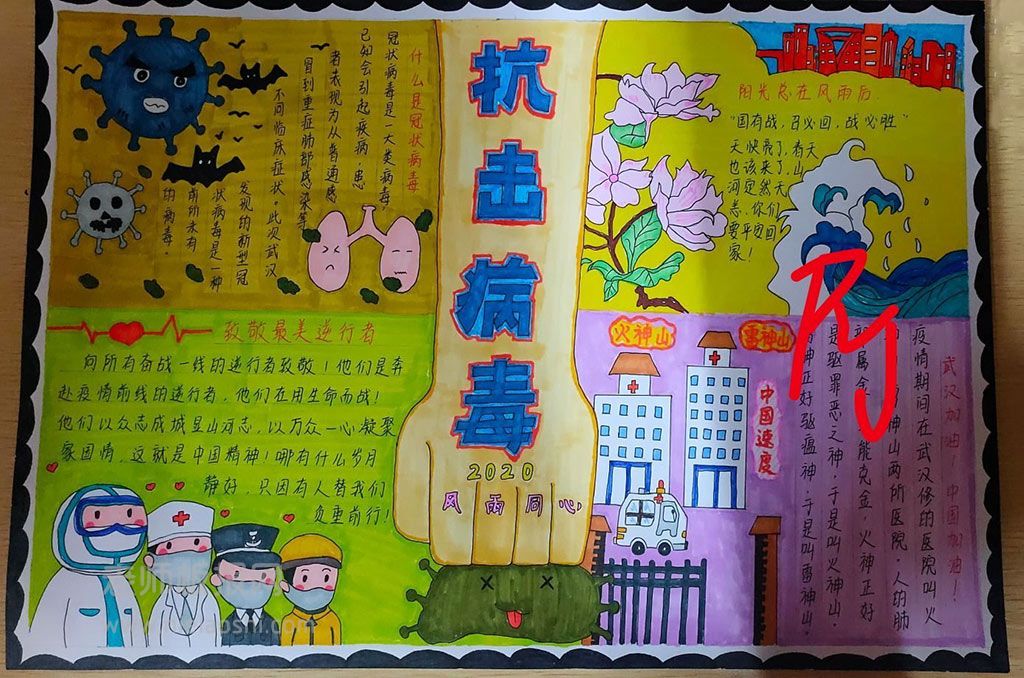 什么是冠状病毒
冠状病毒是一大类病毒，
已知会引起疾病，患
者表现为从普通感
冒到重症肺部感染等
不同临床症状。此次武汉
发现的新型冠
状病毒是一种
前所未有
的病毒。
抗击病毒
2020
风雨同心
阳光总在风雨后
“国有战，召必回，战必胜”
天快亮了，春天
也该来了，山
河定然无
恙，你们
要平安回
家！
致敬最美逆行者
向所有奋战一线的逆行者致敬！他们是奔
赴疫情前线的逆行者，他们在用生命而战！
他们以众志成城显山河志，以万众一心凝聚
家国情，这就是中国精神！哪有什么岁月
静好，只因有人替我们
负重前行！
火神山
雷神山
中国速度
武汉加油！中国加油！
疫情期间在武汉修的医院叫火
神山两所医院，人的肺
属金，能克金，火神正好
是驱罪恶之神，于是叫火神山，
神正好驱瘟神，于是叫雷神山。
RJ